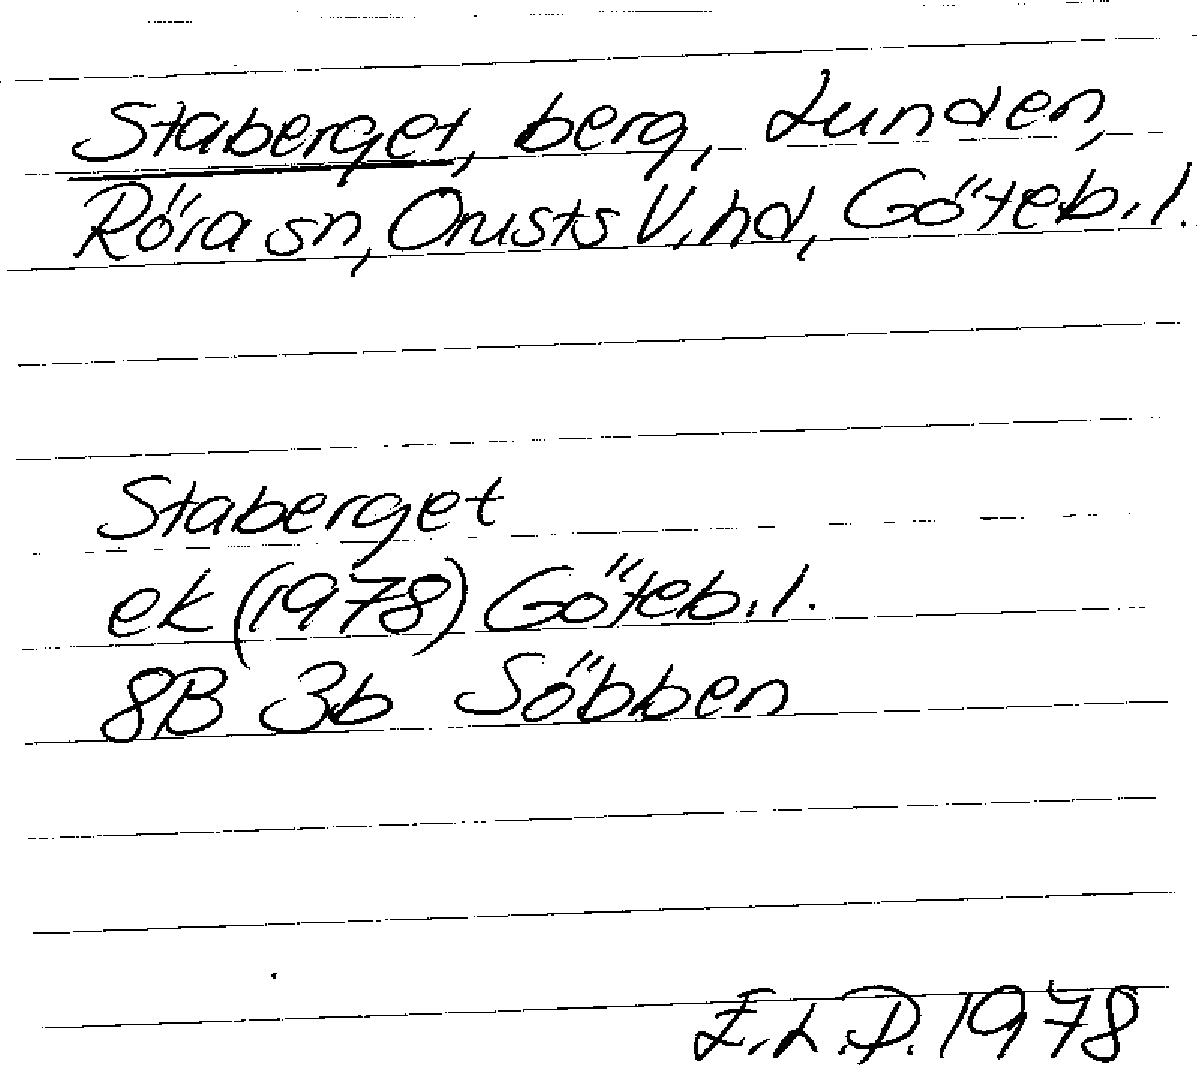 Staberget, berg, Lunden,
Röra sn, Orusts V. hd, Göteb. l.
Staberget
ek (1978) Göteb. l.
8B 3b Söbben
E.L.D. 1978